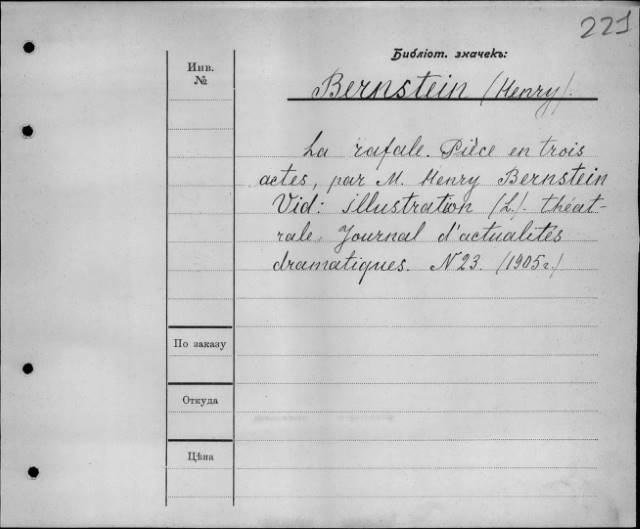 221
Библіот. значекъ:
Инв.
№
Bernstein (Henry).
La rafale. Pièce en trois
actes, par M. Henry Bernstein
Vid: illustration (L.). théat-
rale. Journal d'actualités
dramatiques. N 23. (1905 г.)
По заказу
Откуда
Цѣна